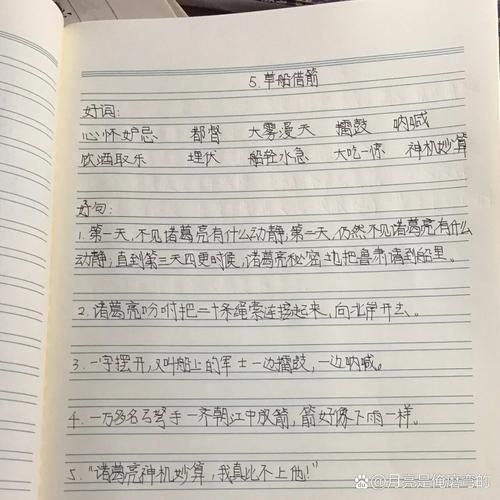 5.草船借箭
好词:
心怀妒忌 都督 大雾漫天 擂鼓 呐喊
饮酒取乐 埋伏 船轻水急 大吃一惊 神机妙算
好句:
1.第一天,不见诸葛亮有什么动静,第二天,仍然不见诸葛亮有什么
动静,直到第三天四更时候,诸葛亮秘密地把鲁肃请到船里。
2.诸葛亮吩咐把二十条绳索连接起来,向北岸开去。
3.一字摆开,又叫船上的军士一边擂鼓,一边呐喊。
4.一万多名弓弩手一齐朝江中放箭,箭好像下雨一样。
5."诸葛亮神机妙算,我真比不上他!"
@月亮是俺磨弯的